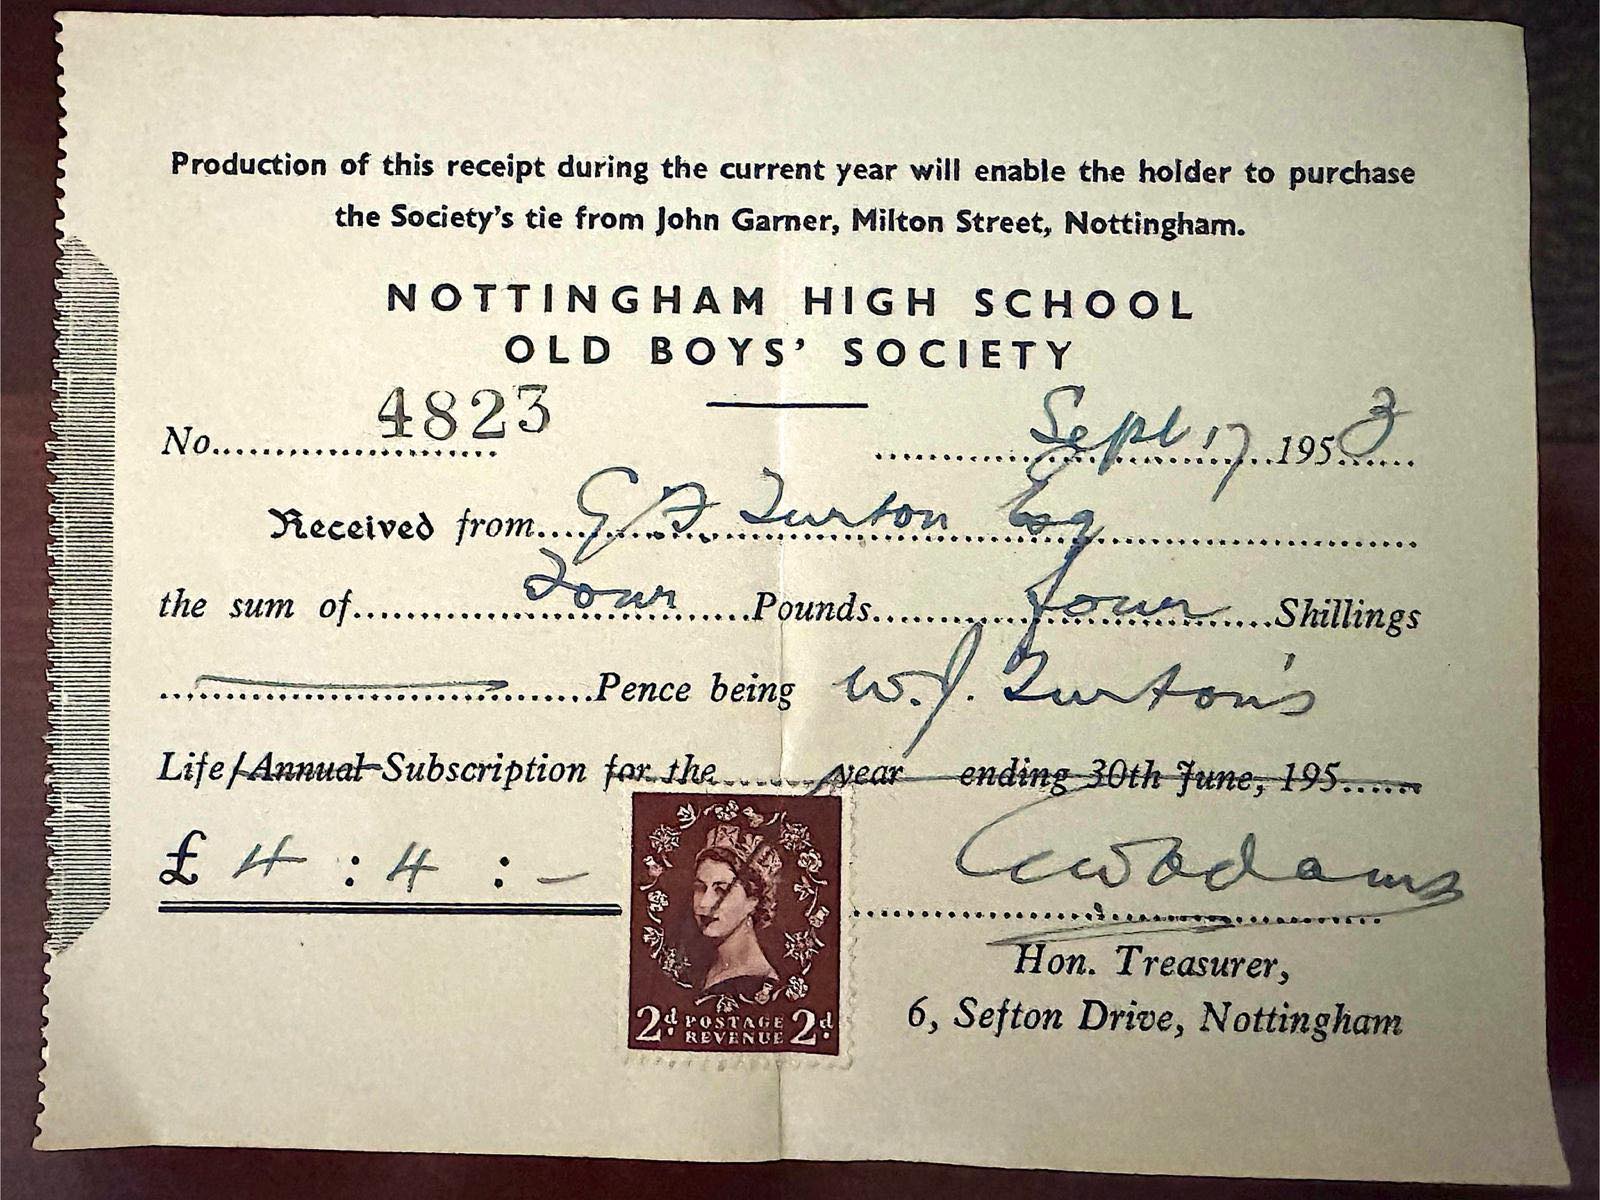 Production of this receipt during the current year will enable the holder to purchase
the Society's tie from John Garner, Milton Street, Nottingham.
NOTTINGHAM HIGH SCHOOL
OLD BOYS' SOCIETY
No. 4823 Sept 17 1953
Received from G F Turton Esq
the sum of Four Pounds four Shillings
Pence being W. J. Turton's
Life/Annual Subscription for the year ending 30th June, 195
£ 4 : 4 : -
Hon. Treasurer,
6, Sefton Drive, Nottingham
2d POSTAGE 2d
REVENUE